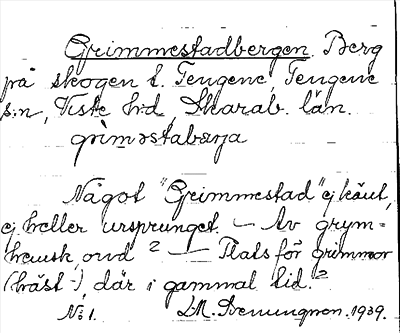 Grimmestadbergen. Berg
på skogen t. Fengene, Fengene
s:n, Viste hrd, Skarab. län.
grìməstabærja
Något "Grimmestad" ej känt,
ej heller ursprunget. – Av grym=
hemsk, ond? – Plats för grimmor
(häst-), där i gammal tid.?
No 1. 1939.